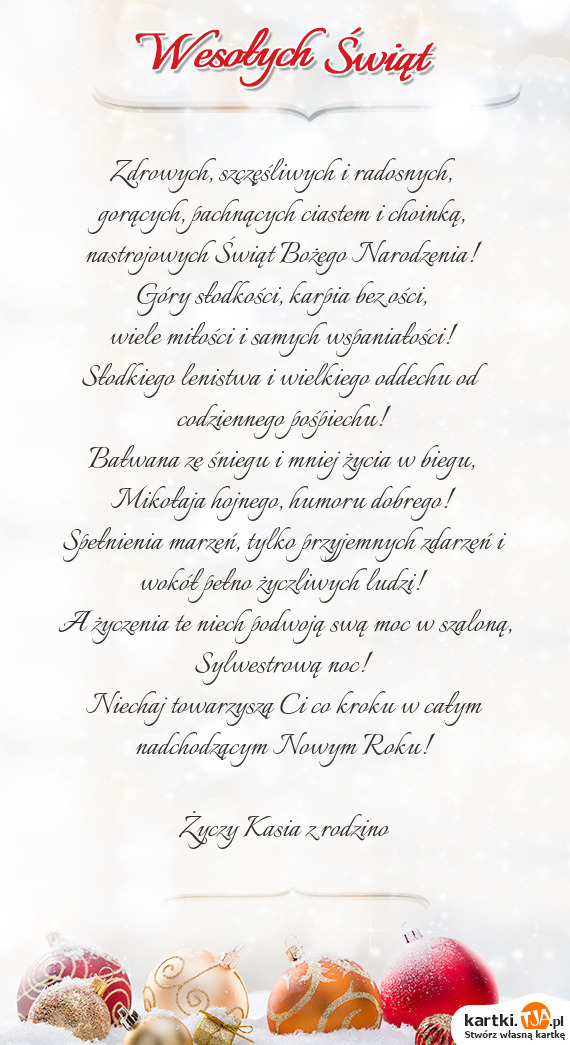 Wesołych Świąt
Zdrowych, szczęśliwych i radosnych,
gorących, pachnących ciastem i choinką,
nastrojowych Świąt Bożego Narodzenia!
Góry słodkości, karpia bez ości,
wiele miłości i samych wspaniałości!
Słodkiego lenistwa i wielkiego oddechu od
codziennego pośpiechu!
Bałwana zę śniegu i mniej życia w biegu,
Mikołaja hojnego, humoru dobrego!
Spełnienia marzeń, tylko przyjemnych zdarzeń i
wokół pełno życzliwych ludzi!
A życzenia te niech podwoją swą moc w szaloną,
Sylwestrową noc!
Niechaj towarzyszą Ci co kroku w całym
nadchodzącym Nowym Roku!
Życzy Kasia z rodzino
kartki.TJA.pl
Stwórz własną kartkę